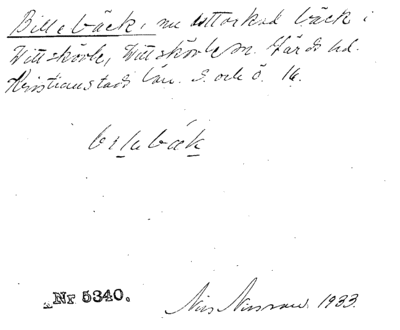 Billebäck, nu uttorkad bäck i
Vittskövle, Vittskövle sn. Gärds hd.
Kristianstads län. S. och Ö. 16.
bilebæk
Nr 5340.
Nils Nilsson. 1933.